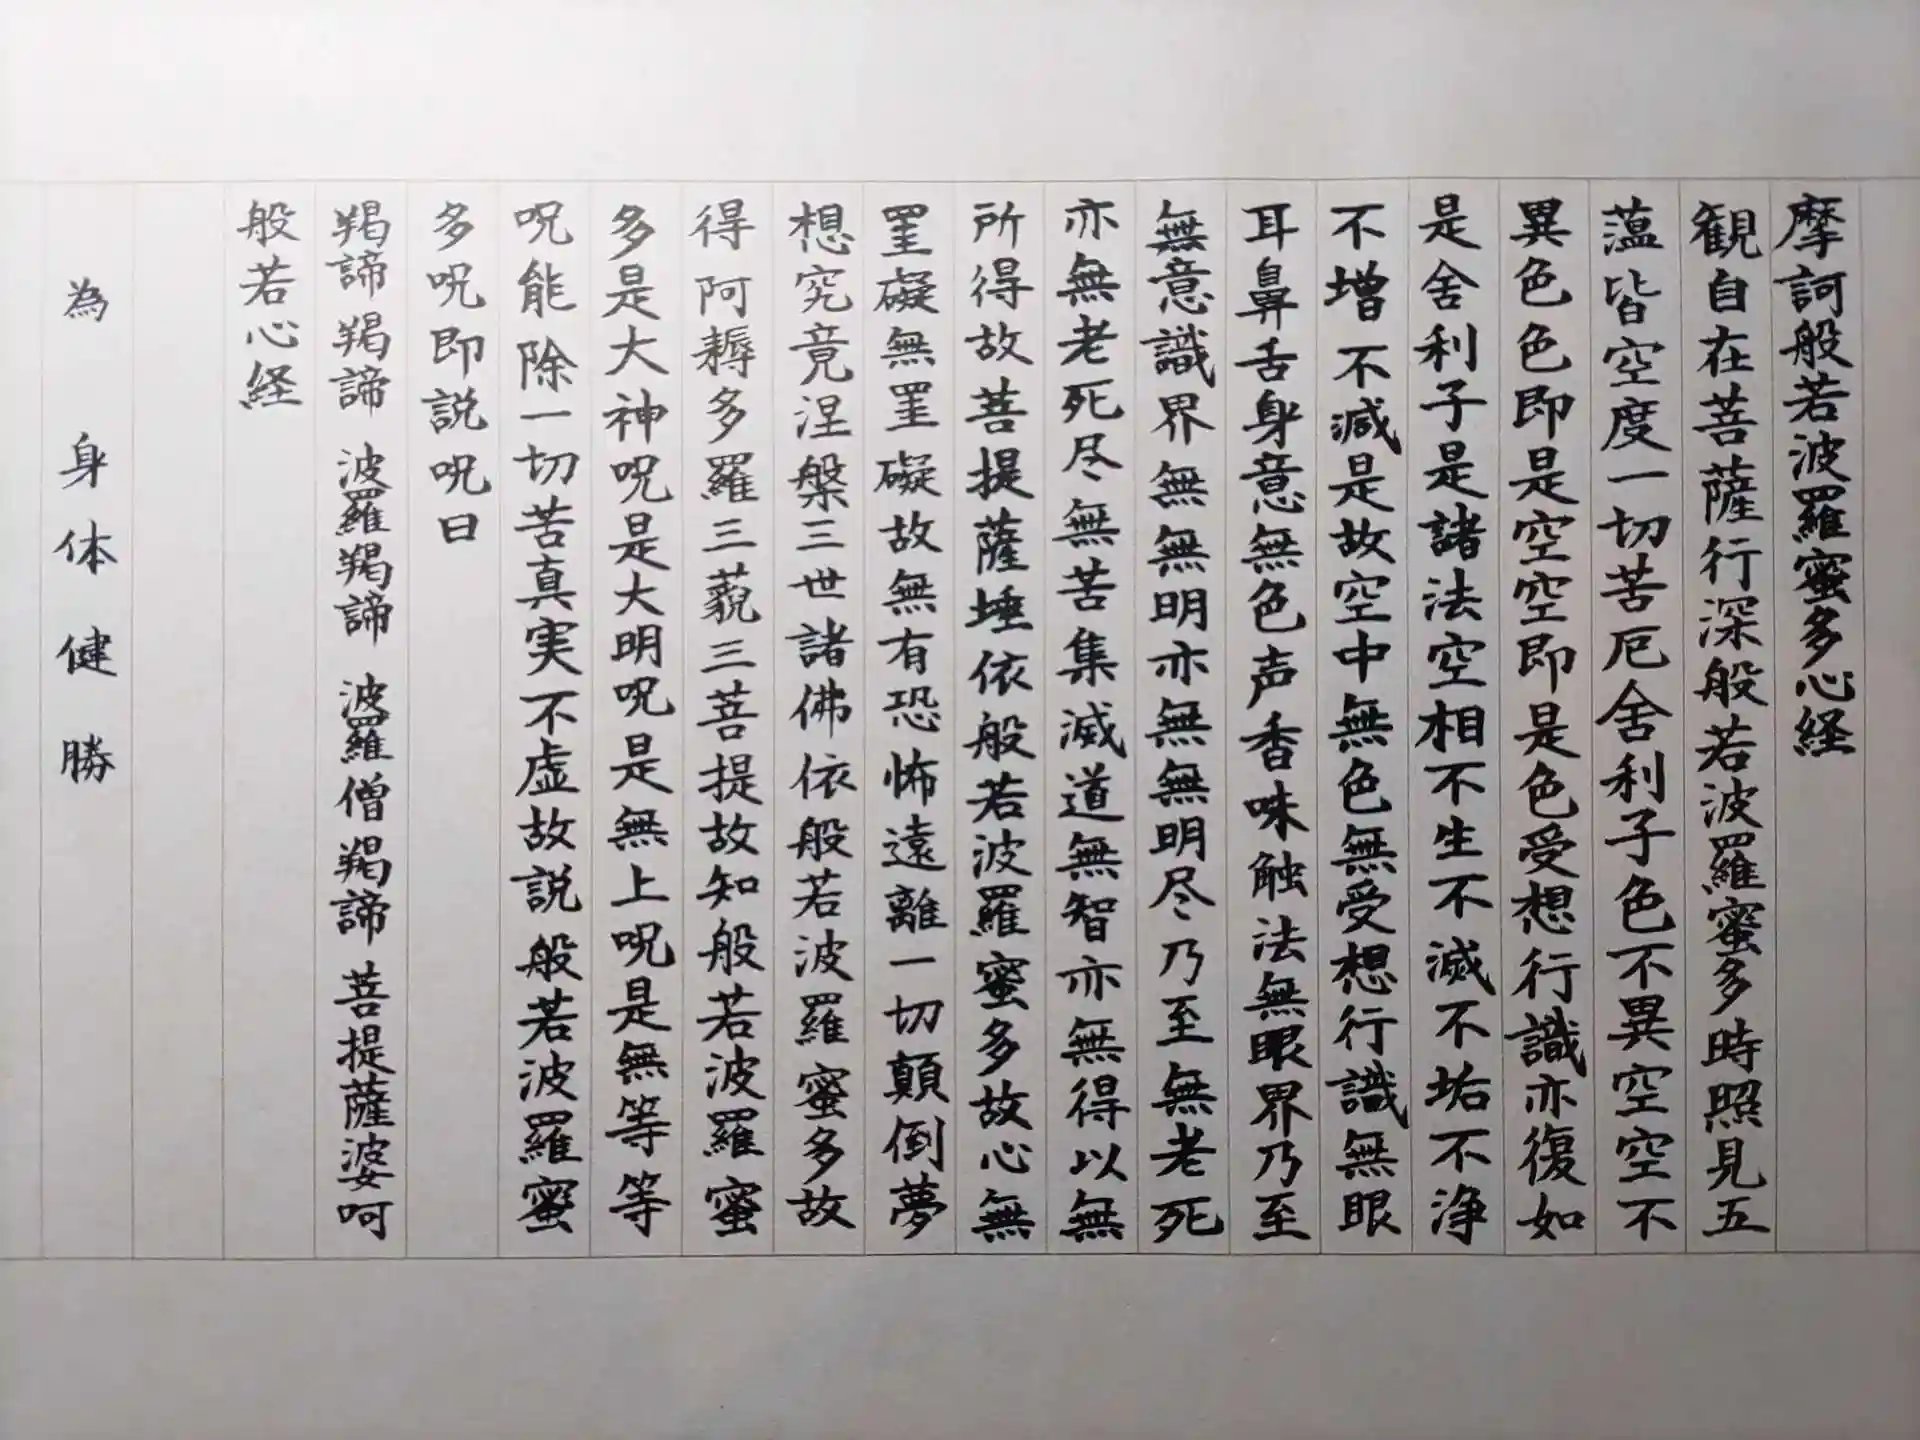 摩訶般若波羅蜜多心経
観自在菩薩行深般若波羅蜜多時照見五
薀皆空度一切苦厄舎利子色不異空空不
異色色即是空空即是色受想行識亦復如
是舎利子是諸法空相不生不滅不垢不浄
不増不減是故空中無色無受想行識無眼
耳鼻舌身意無色声香味触法無眼界乃至
無意識界無無明亦無無明尽乃至無老死
亦無老死尽無苦集滅道無智亦無得以無
所得故菩提薩埵依般若波羅蜜多故心無
罣礙無罣礙故無有恐怖遠離一切顛倒夢
想究竟涅槃三世諸佛依般若波羅蜜多故
得阿耨多羅三藐三菩提故知般若波羅蜜
多是大神呪是大明呪是無上呪是無等等
呪能除一切苦真実不虚故説般若波羅蜜
多呪即説呪曰
羯諦羯諦 波羅羯諦 波羅僧羯諦 菩提薩婆呵
般若心経
為 身体健勝